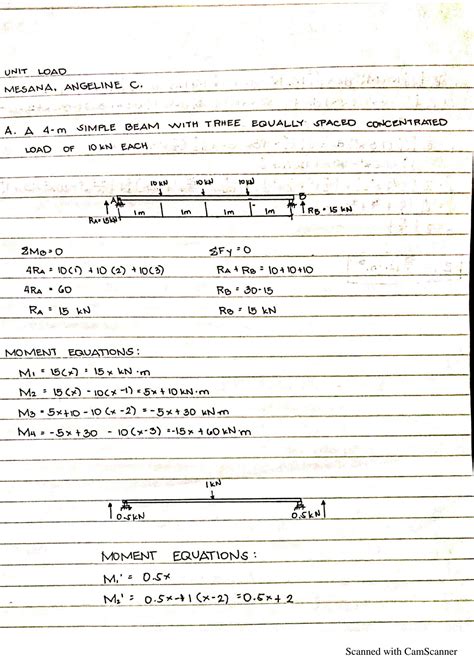 UNIT LOAD
MESANA, ANGELINE C.
A. A 4-m SIMPLE BEAM WITH TRHEE EQUALLY SPACED CONCENTRATED
LOAD OF 10 KN EACH.
10 KN 10 KN 10 KN
A B
RA = 15 KN 1m 1m 1m 1m RB = 15 KN
ΣMB = 0 ΣFy = 0
4RA = 10(1) + 10(2) + 10(3) RA + RB = 10+10+10
4RA = 60 RB = 30-15
RA = 15 KN RB = 15 KN
MOMENT EQUATIONS:
M1 = 15(x) = 15x KN·m
M2 = 15(x) - 10(x-1) = 5x + 10 KN·m
M3 = 5x+10 - 10(x-2) = -5x + 30 KN·m
M4 = -5x + 30 - 10(x-3) = -15x + 60 KN·m
1 KN
0.5KN 0.5KN
MOMENT EQUATIONS:
M1' = 0.5x
M2' = 0.5x-1(x-2) = 0.5x + 2
Scanned with CamScanner